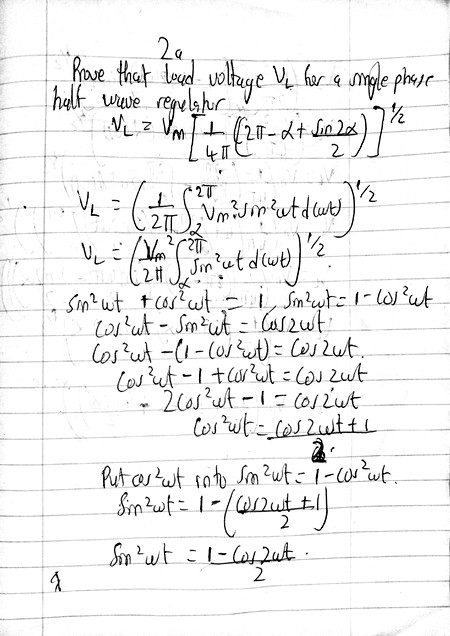 2a
Prove that load voltage V_L for a single phase
half wave regulator
V_L = V_m [1/4π ((2π - α + sin2α/2)]^1/2
V_L = (1/2π ∫_α^2π V_m² sin²ωt d(ωt))^1/2
V_L = (V_m²/2π ∫_α^2π sin²ωt d(ωt))^1/2
sin²ωt + cos²ωt = 1, sin²ωt = 1 - cos²ωt
cos²ωt - sin²ωt = cos2ωt
cos²ωt - (1 - cos²ωt) = cos2ωt.
cos²ωt - 1 + cos²ωt = cos2ωt
2cos²ωt - 1 = cos2ωt
cos²ωt = cos2ωt + 1/2.
Put cos²ωt into sin²ωt = 1 - cos²ωt.
sin²ωt = 1 - (cos2ωt + 1/2)
sin²ωt = 1 - cos2ωt/2.